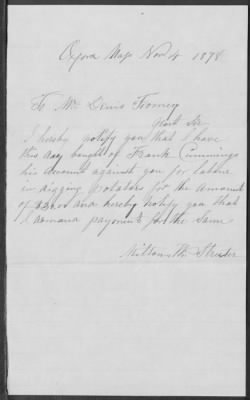 Oxford Mass Nov 4 1878
To Mr Denis Toomey
Dear Sir
I hereby notify you that I have
this day bought of Frank Cummings
his account against you for labor
in digging potatoes for the amount
of and hereby notify you that
I demand payment for the same
Milton M. Streeter